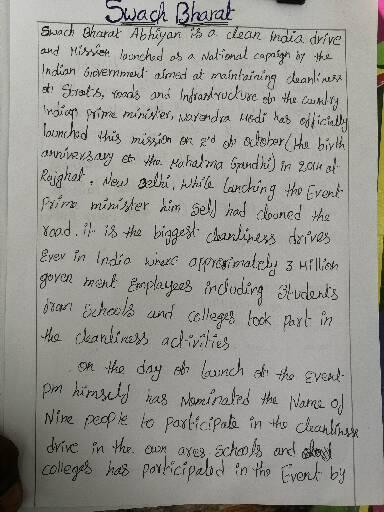 Swach Bharat
Swach Bharat Abhiyan is a clean India drive
and Mission launched as a National capaign by the
Indian Government aimed at maintaining cleanliness
of Streets, roads and Infrastructure of the country
Indian prime minister, Narendra Modi has officially
launched this mission on 2nd of october (the birth
anniversary of the Mahatma Gandhi) in 2014 at
Rajghat, New Delhi, While lanching the Event
Prime minister him self had cleaned the
road. it is the biggest cleanliness drives
Ever in India where approximately 3 Million
goven ment Employees including Students
from Schools and colleges took part in
the cleanliness activities
on the day of launch of the Event
pm himself has Nominated the Name of
Nine people to participate in the cleanliness
drive in the own ares schools and
colleges has participated in the Event by